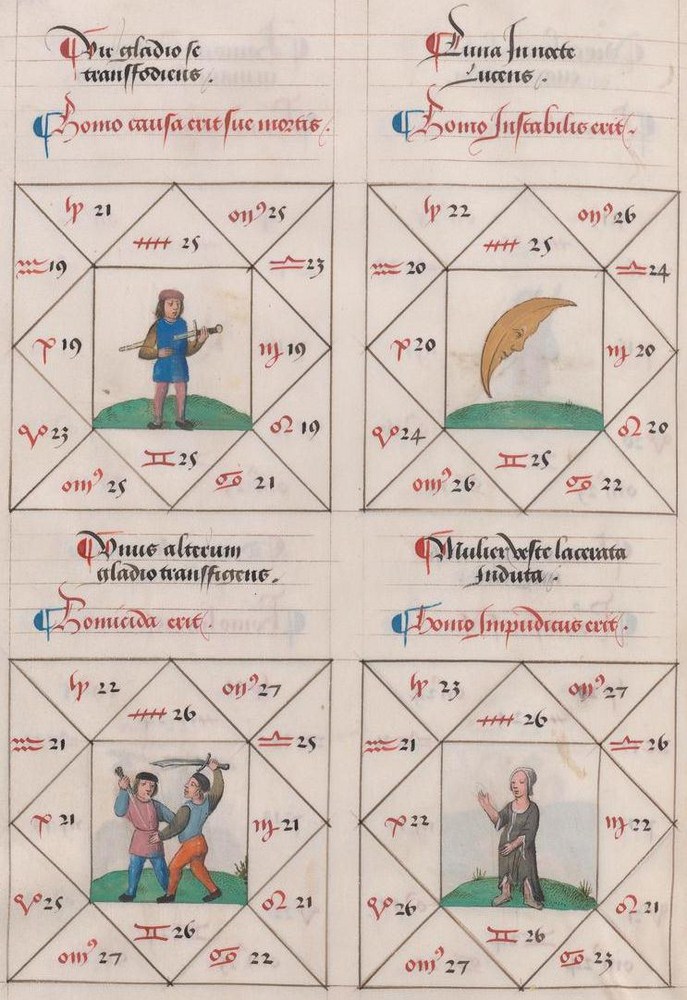 Vir gladio se
transfodiens.
Homo causa erit sue mortis.
Luna In nocte
Lucens.
Homo Instabilis erit.
♓ 21
25
25
♒ 19
♎ 23
♈ 19
♏ 19
♉ 23
♌ 19
♊ 25
25
♋ 21
♓ 22
26
25
♒ 20
♎ 24
♈ 20
♏ 20
♉ 24
♌ 20
♊ 25
26
♋ 22
Vnus alterum
gladio transfigens.
Homicida erit.
Mulier veste lacerata
Induta.
Homo Impudicus erit.
♓ 22
27
26
♒ 21
♎ 25
♈ 21
♏ 21
♉ 25
♌ 21
♊ 26
27
♋ 22
♓ 23
27
26
♒ 21
♎ 26
♈ 22
♏ 22
♉ 26
♌ 21
♊ 26
27
♋ 23